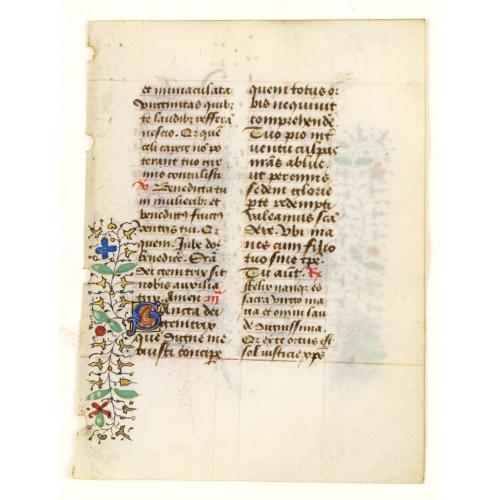 et inmaculata
virginitas quib
te laudib refferā
nescio. Qr quē
celi capere nō po
terant tuo gre
mio contulisti
Benedicta tu
in mulierib et
benedictꝰ fructꝰ
ventris tui. Qr
quem. Jube doe
benedice. Scā
dei genitrix sit
nobis auxilia
trix. Amen
Sancta dei
genitrix
que digne me
ruisti concipe
quem totus or
bis nequivit
comprehende
Tuo pio int
ventu culpas
nrās ablue.
ut perennis
sedem glorie
p te redempti
valeamus scā
dere. Ubi ma
nes cum filio
tuo sine tpe.
Tu aūt. R
Felix nanqꝫ es
sacra virgo ma
ria et omni lau
de dignissima
Qr ex te ortus est
sol iusticie xp̄s